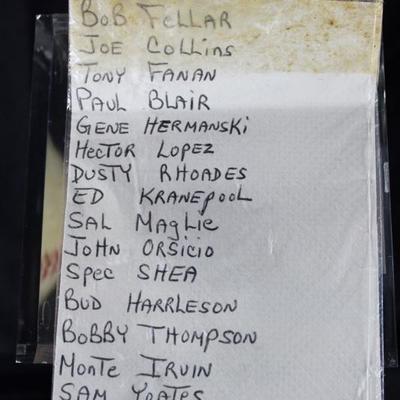 BOB FELLAR
JOE COLLINS
TONY FANAN
PAUL BLAIR
GENE HERMANSKI
HECTOR LOPEZ
DUSTY RHOADES
ED KRANEPOOL
SAL MAGLIE
JOHN ORSICIO
SPEC SHEA
BUD HARRLESON
BOBBY THOMPSON
MONTE IRVIN
SAM YOATES